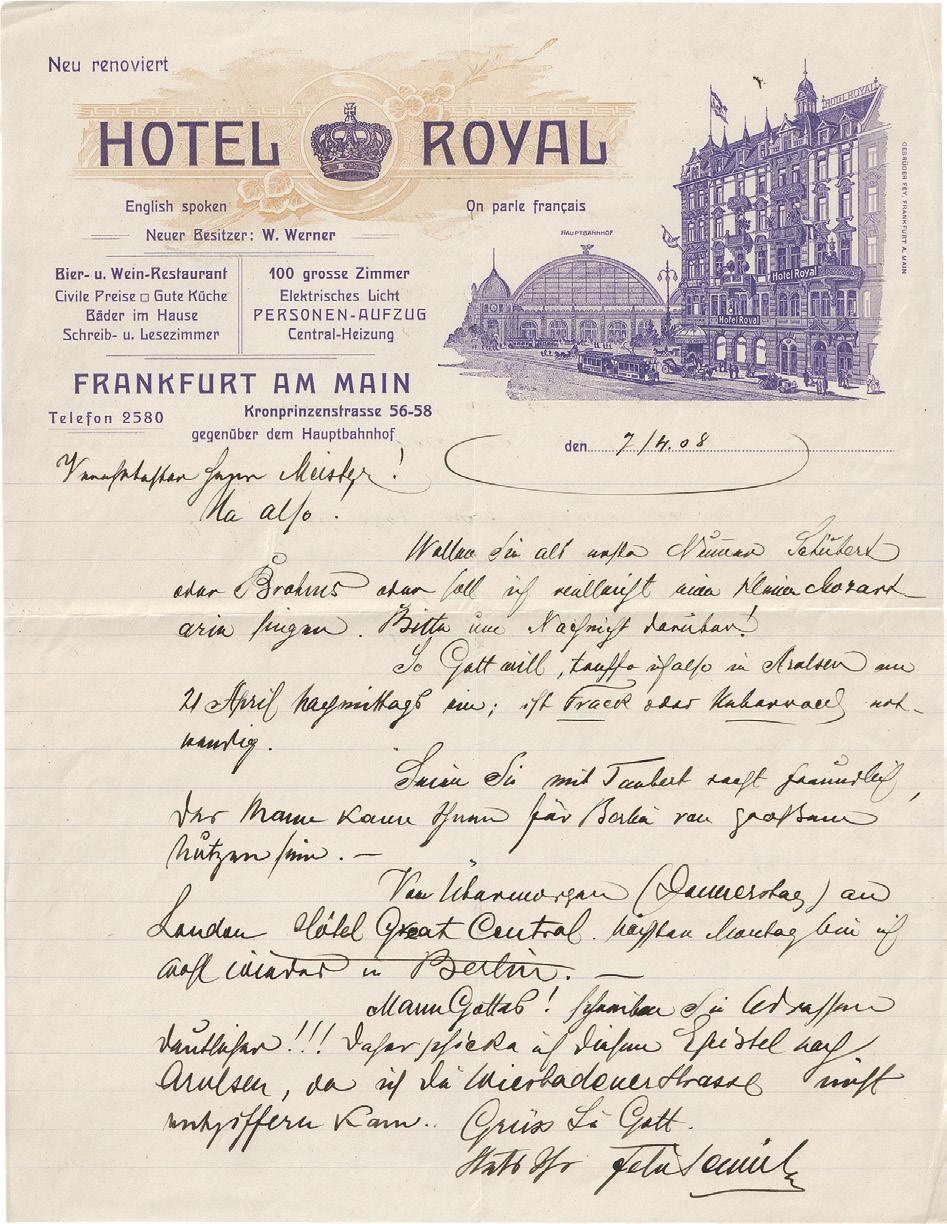 Neu renoviert
HOTEL ROYAL
English spoken
On parle français
Neuer Besitzer: W. Werner
Bier- u. Wein-Restaurant
Civile Preise □ Gute Küche
Bäder im Hause
Schreib- u. Lesezimmer
100 grosse Zimmer
Elektrisches Licht
PERSONEN-AUFZUG
Central-Heizung
FRANKFURT AM MAIN
Telefon 2580
Kronprinzenstrasse 56-58
gegenüber dem Hauptbahnhof
HAUPTBAHNHOF
HOTEL ROYAL
Hotel Royal
Hotel Royal
GEBRÜDER FEY, FRANKFURT A. MAIN
den 7/4.08
Verehrtester Herr Meister!
Na also.
Wollen Sie als erste Nummer Schubert
oder Brahms oder soll ich vielleicht eine kleine Mozart
arie singen. Bitte um Nachricht darüber!
So Gott will, treffe ich also in Arolsen am
21 April nachmittags ein; ist Frack oder notwendig.
Seien Sie mit Taubert recht freundlich,
der Mann kann Ihnen für Berlin von großem
Nutzen sein. —
Von Übermorgen (Donnerstag) an
London Hôtel Great Central. Nächsten Montag bin ich
wohl wieder in Berlin. —
Mann Gottes! schreiben Sie Adressen
deutlicher!!! Daher schicke ich diesen Epistel nach
Arolsen, da ich die Wiesbadenerstrasse nicht
entziffern kann.. Grüss Sie Gott.
Stets Ihr Felix